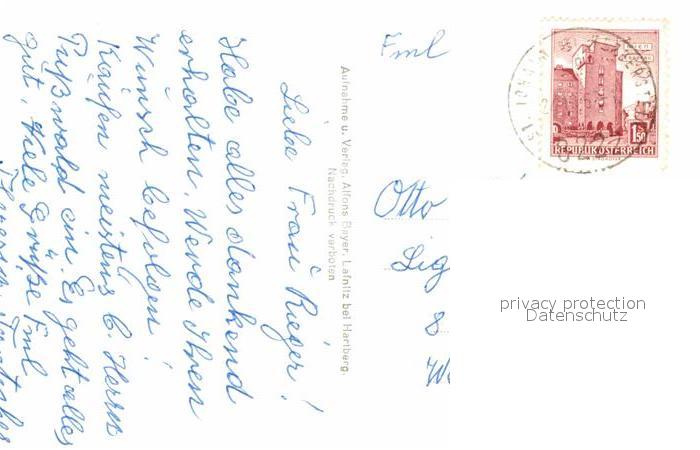 Liebe Frau Rieger!
Habe alles dankend
erhalten. Werde Ihren
Wunsch befolgen!
Kaufen meistens b. Herrn
Pußwald ein. Es geht alles
gut, Viele Grüße Fml
Aufnahme u. Verlag: Alfons Bayer, Lafnitz bei Hartberg.
Nachdruck verboten
Fml
Otto
8
1.50
REPUBLIK ÖSTERREICH
privacy protection
Datenschutz